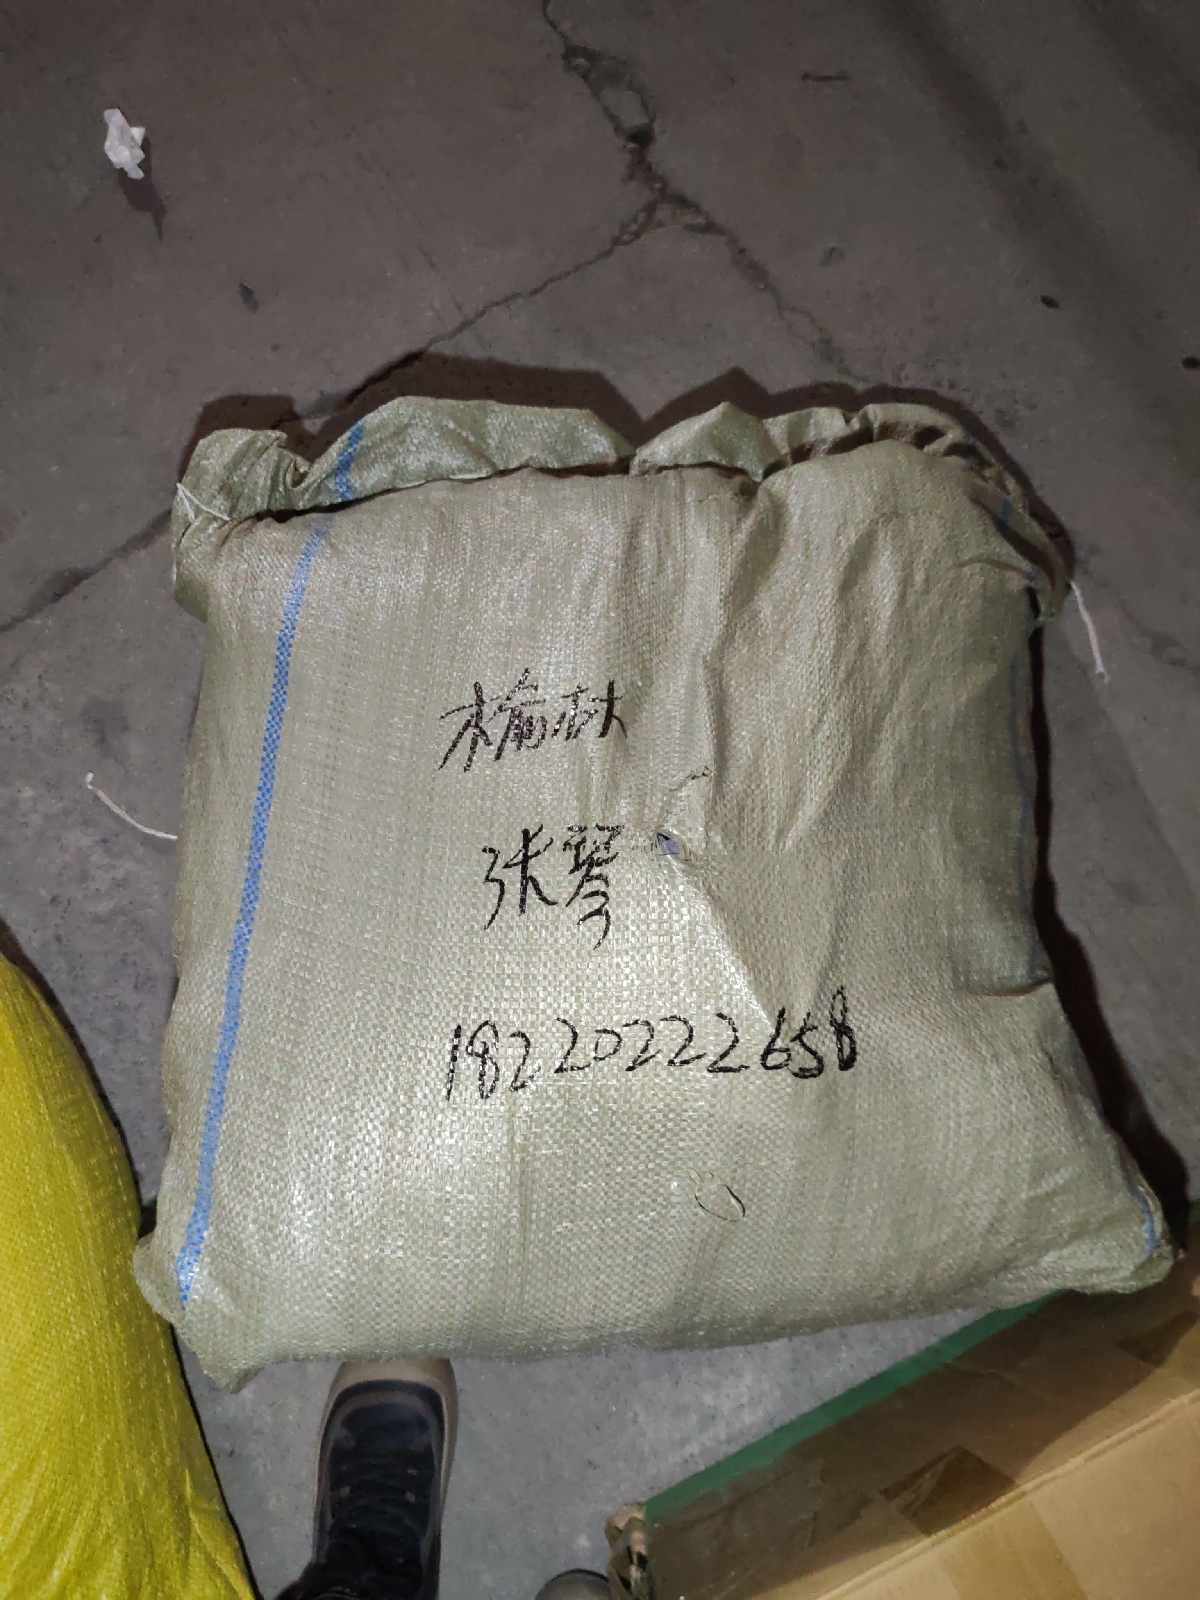 榆林
张琴
18220222658